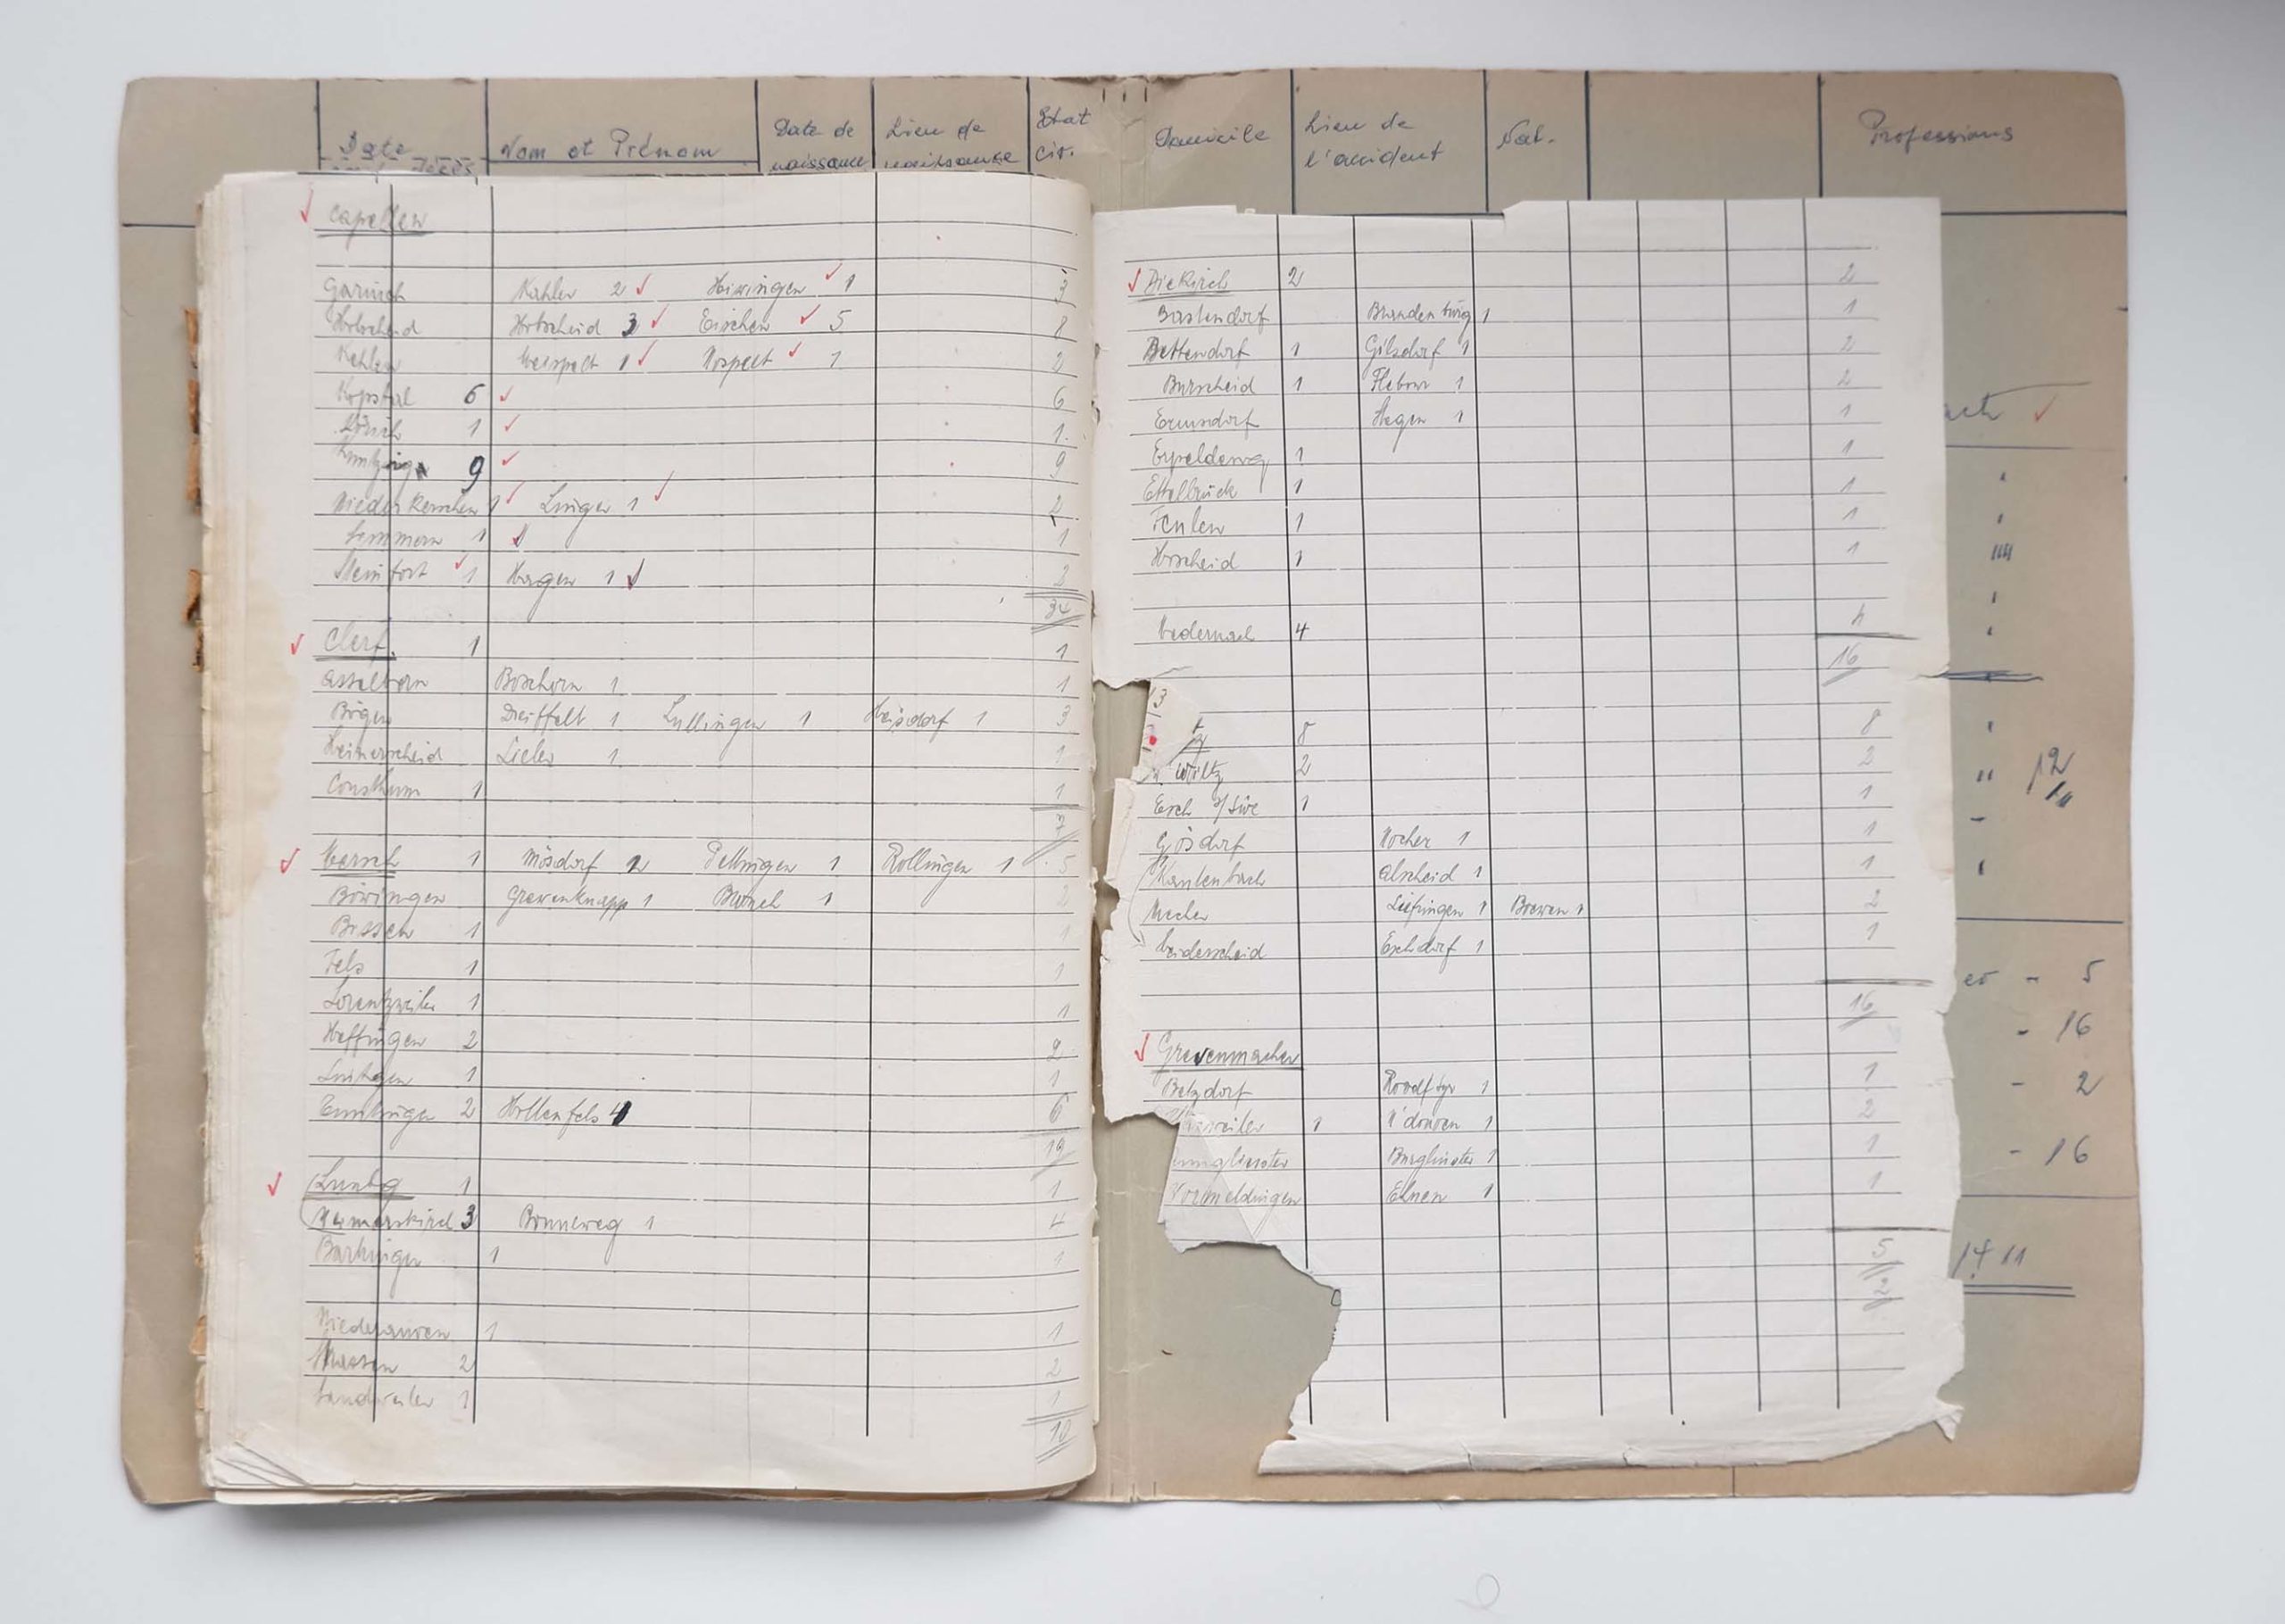 Date
Nom et Prénom
Date de naissance
Lieu de naissance
Etat civ.
Domicile
Lieu de l'accident
Nat.
Professions
Capellen
Garnich Kahler 2 Hivingen 1 3
Hobscheid Hobscheid 3 Eischen 5 8
Kehlen Meispelt 1 Nospelt 1 2
Kopstal 6 6
1 1
9 9
Niederkerschen 1 Linger 1 2
Simmern 1 1
Steinfort 1 Hagen 1 2
34
Clerf. 1 1
Asselborn Boxhorn 1 1
Bögen Dreiffelt 1 Lullingen 1 Heisdorf 1 3
Heinerscheid Lieler 1 1
Consthum 1 1
7
Mersch 1 Mösdorf 2 Pettingen 1 Rollingen 1 5
Böwingen Grevenknapp 1 Buruch 1 2
Bissen 1 1
Fels 1 1
Lorentzweiler 1 1
Heffingen 2 2
Lintgen 1 1
2 Hollenfels 4 6
19
Luxbg 1 1
3 Bonneweg 1 4
Bartringen 1 1
Niederanven 1 1
2 2
Sandweiler 1 1
10
Diekirch 2 2
Bastendorf Brandenburg 1 1
Bettendorf 1 Gilsdorf 1 2
Burscheid 1 Flebour 1 2
Ermsdorf Stegen 1 1
Erpeldang 1 1
Ettelbrück 1 1
Feulen 1 1
Hoscheid 1 1
Medernach 4 4
16
13
8 8
Wiltz 2 2
Esch s/Sûre 1 1
Gösdorf Nocher 1 1
Kautenbach Alscheid 1 1
Mecher Liefringen 1 Bowen 1 2
Heiderscheid Eschdorf 1 1
16
Grevenmacher
Betzdorf Roodtsyr 1 1
weiler 1 N'donven 1 2
unglinster Burglinster 1 1
Wormeldingen Ehnen 1 1
5
2
12
- 5
- 16
- 2
- 16